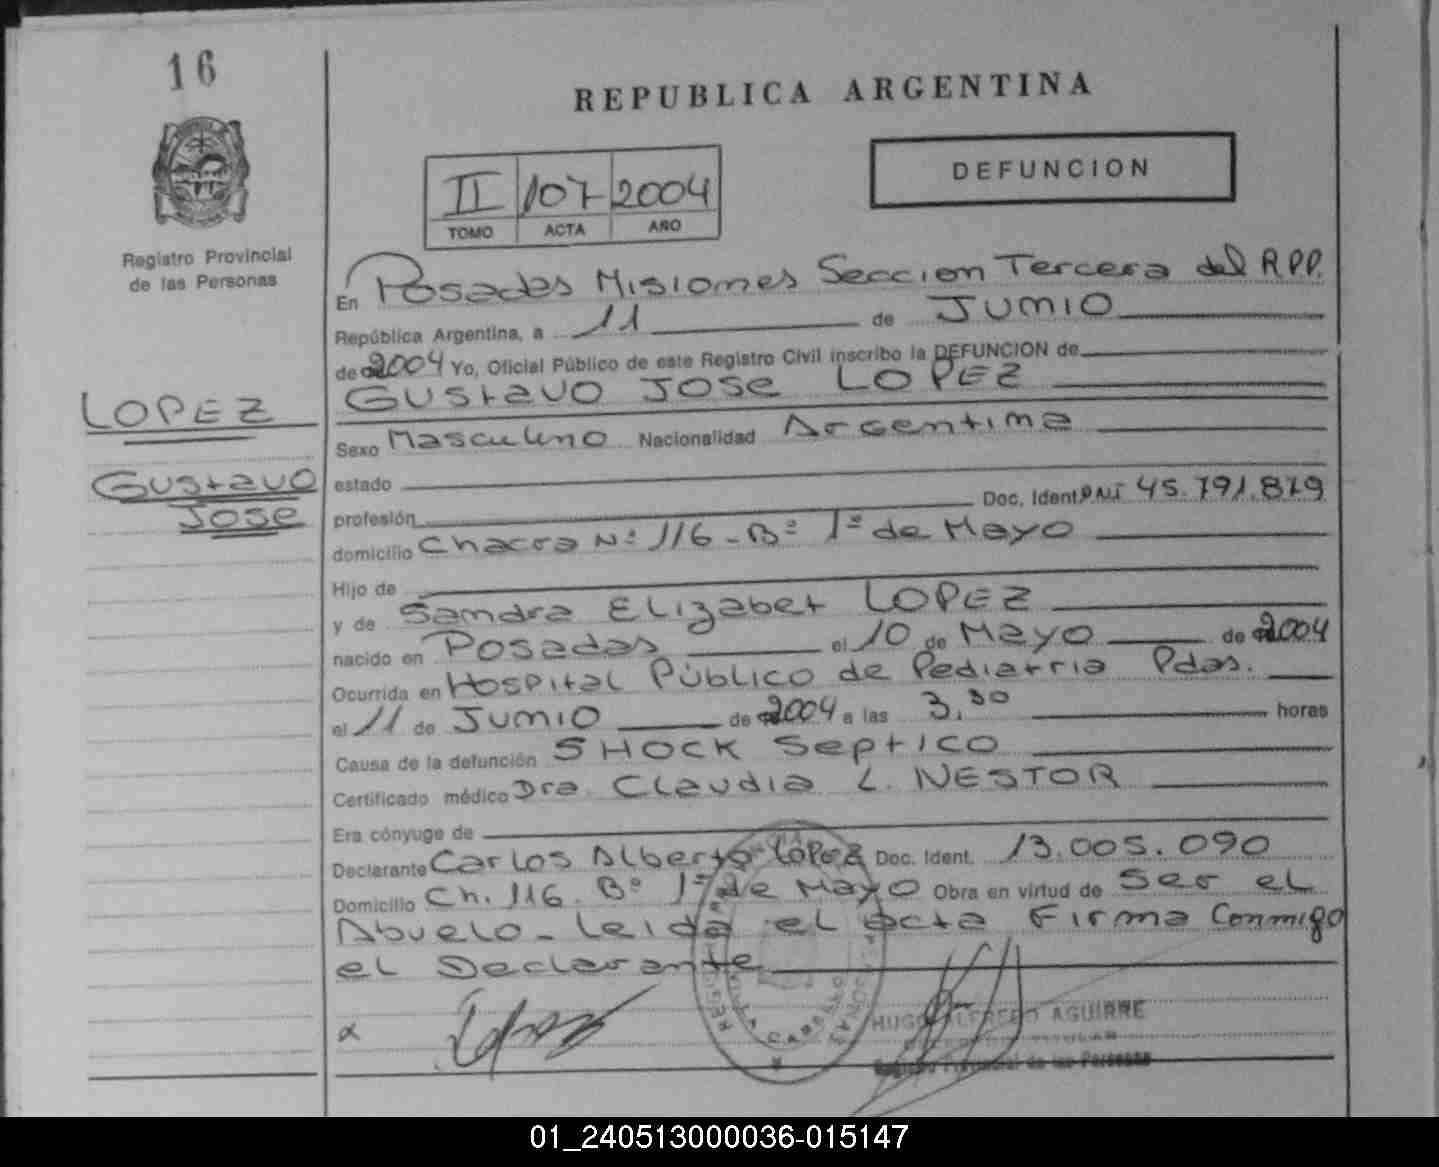 16
REPUBLICA ARGENTINA
DEFUNCION
II 107 2004
TOMO ACTA AÑO
Registro Provincial
de las Personas
En Posadas Misiones Seccion Tercera del R.P.P.
República Argentina, a 11 de Junio
de 2004 Yo, Oficial Público de este Registro Civil inscribo la DEFUNCION de
GUSTAVO JOSE LOPEZ
LOPEZ
Gustavo
Jose
Sexo Masculino Nacionalidad Argentina
estado
profesión Doc. Ident. DNI 45.791.879
domicilio Chacra Nº 116 - Bº 1º de Mayo
Hijo de
y de Sandra Elizabet LOPEZ
nacido en Posadas el 10 de Mayo de 2004
Ocurrida en Hospital Público de Pediatria Pdas.
el 11 de Junio de 2004 a las 3,30 horas
Causa de la defunción SHOCK Septico
Certificado médico Dra. Claudia L. NESTOR
Era cónyuge de
Declarante Carlos Alberto Lopez Doc. Ident. 13.005.090
Domicilio Ch. 116 Bº 1º de Mayo Obra en virtud de Ser el
Abuelo - Leida el acta Firma Conmigo
el Declarante
HUGO ALFREDO AGUIRRE
Registro Provincial de las Personas
01_240513000036-015147